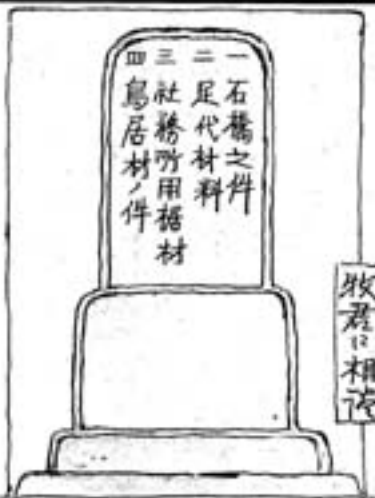 一 石橋之件
二 足代材料
三 社務所用据材
四 鳥居材ノ件
牧君ニ相談